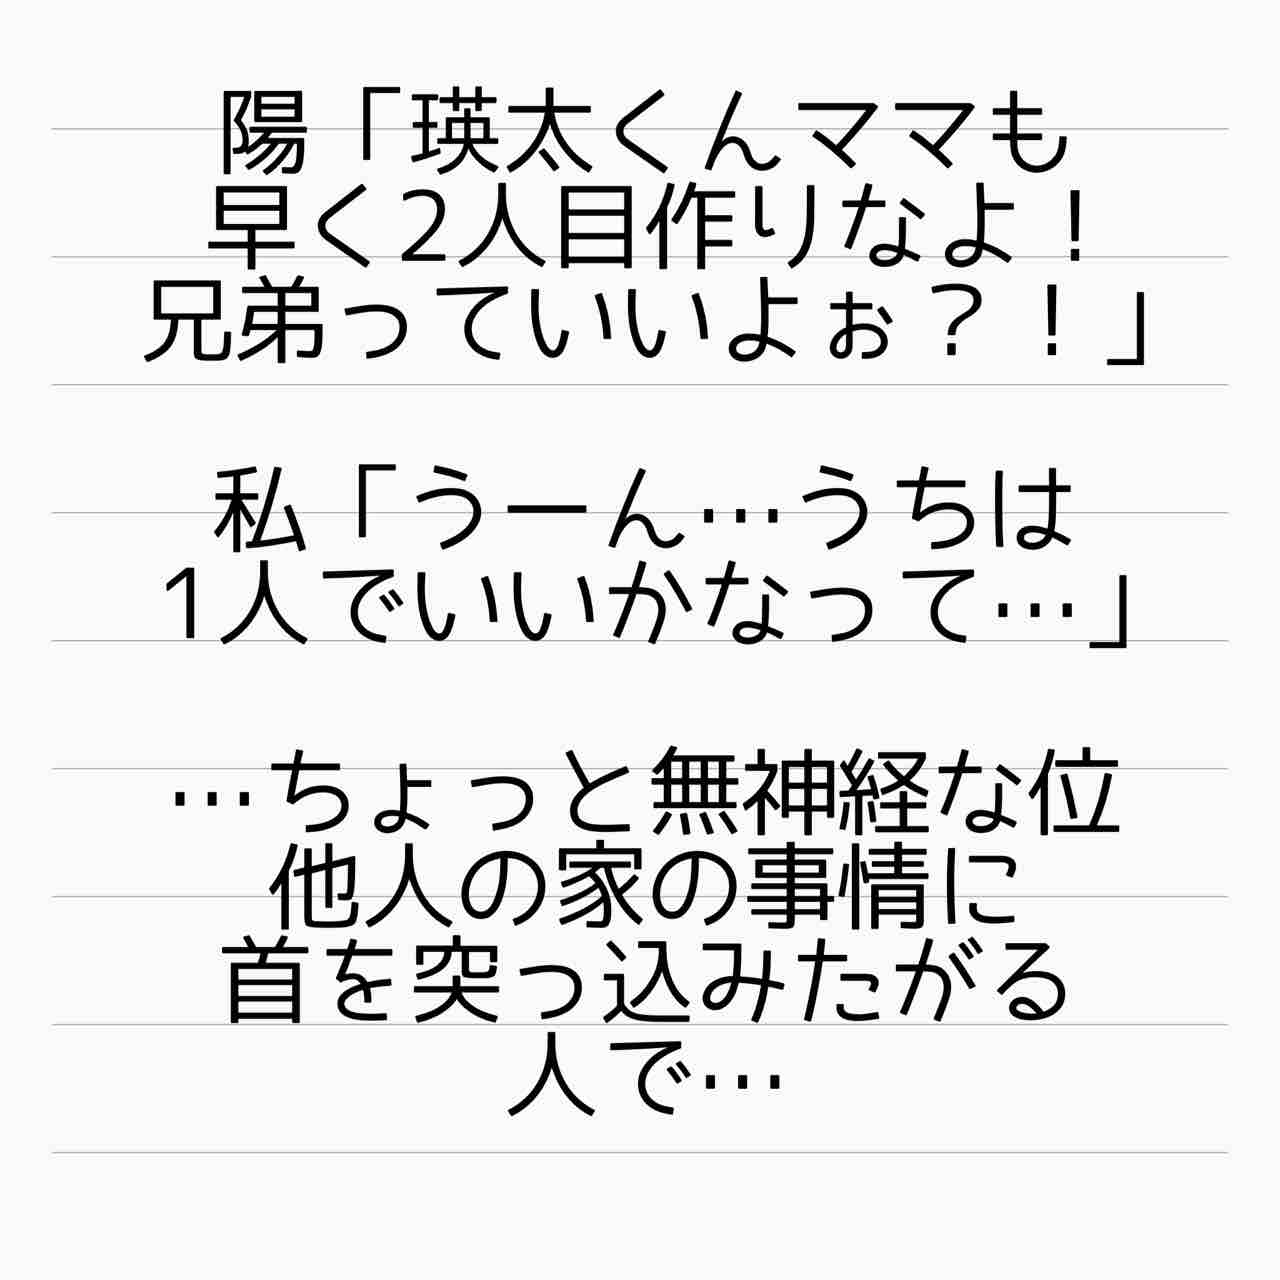 陽「瑛太くんママも
早く2人目作りなよ！
兄弟っていいよぉ？！」
私「うーん…うちは
1人でいいかなって…」
…ちょっと無神経な位
他人の家の事情に
首を突っ込みたがる
人で…